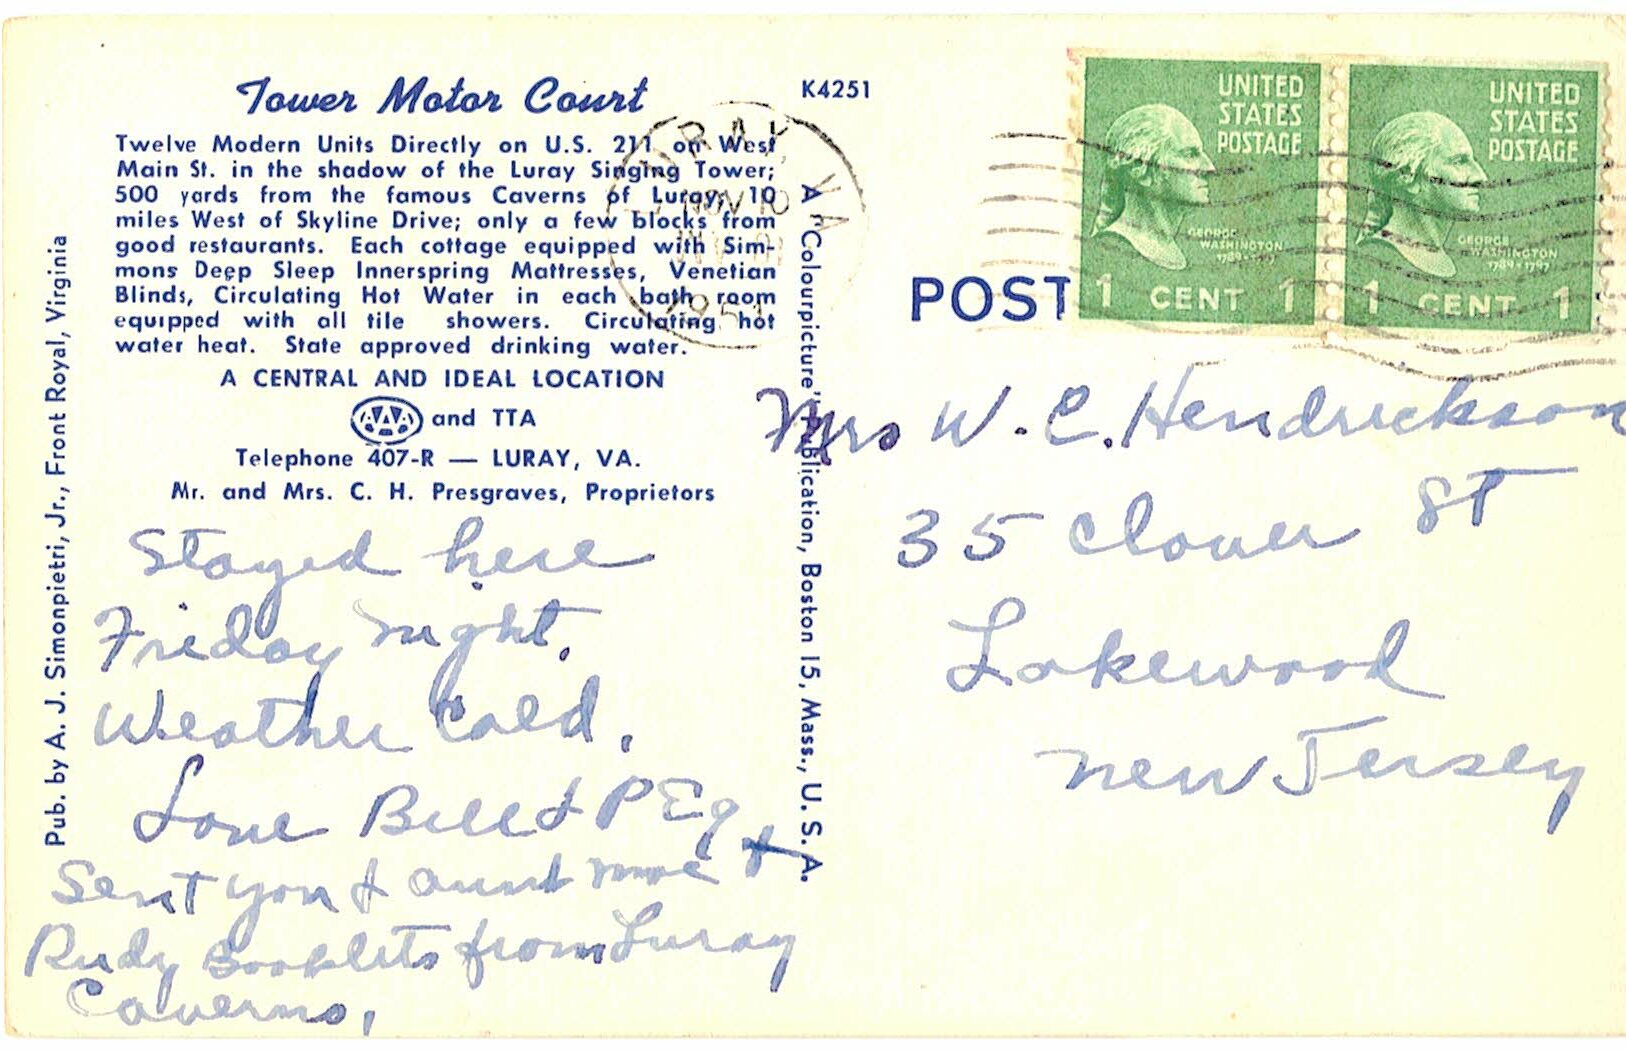 Tower Motor Court
Twelve Modern Units Directly on U.S. 211 on West
Main St. in the shadow of the Luray Singing Tower;
500 yards from the famous Caverns of Luray; 10
miles West of Skyline Drive; only a few blocks from
good restaurants. Each cottage equipped with Sim-
mons Deep Sleep Innerspring Mattresses, Venetian
Blinds, Circulating Hot Water in each bath room
equipped with all tile showers. Circulating hot
water heat. State approved drinking water.
A CENTRAL AND IDEAL LOCATION
AAA and TTA
Telephone 407-R — LURAY, VA.
Mr. and Mrs. C. H. Presgraves, Proprietors
Stayed here
Friday night.
Weather Cold.
Love Bill & PEg
Sent you & aunt mae &
Rudy Booklets from Luray
Caverns.
Pub. by A. J. Simonpietri, Jr., Front Royal, Virginia
K4251
A "Colourpicture" Publication, Boston 15, Mass., U. S. A.
LURAY, VA
NOV 10
POST
UNITED
STATES
POSTAGE
GEORGE
WASHINGTON
1789-1797
1 CENT 1
UNITED
STATES
POSTAGE
GEORGE
WASHINGTON
1789-1797
1 CENT 1
Mrs W. C. Hendrickson
35 Clover St
Lakewood
New Jersey